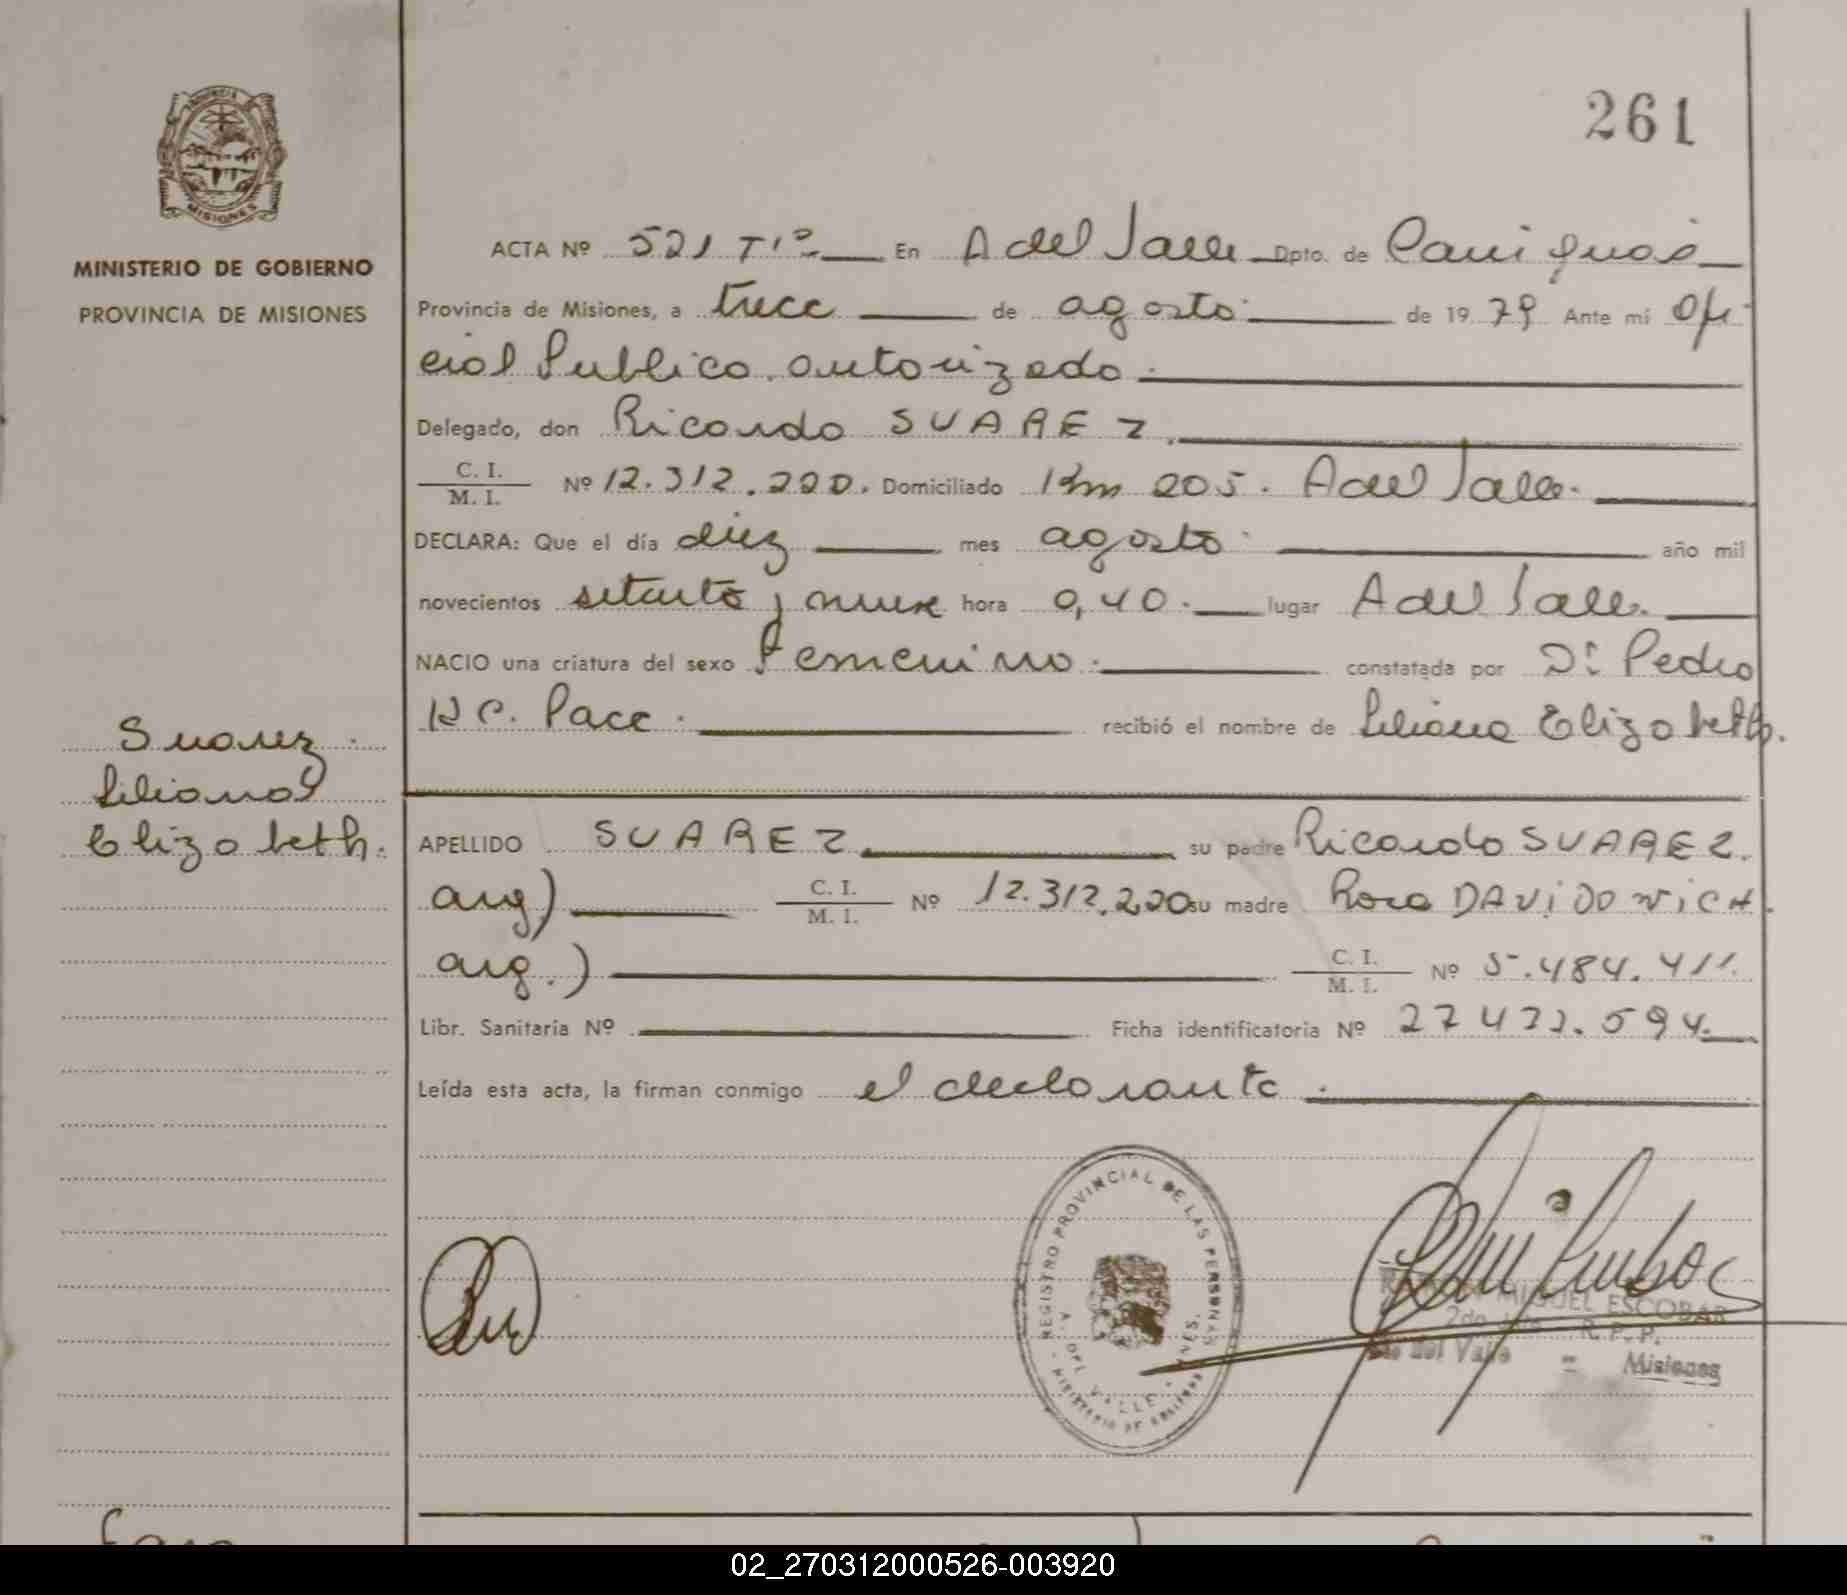 261
MINISTERIO DE GOBIERNO
PROVINCIA DE MISIONES
MISIONES
ACTA Nº 521 Tº En A del Valle Dpto. de Cainguás
Provincia de Misiones, a trece de agosto de 1979 Ante mi Ofi
cial Publico autorizado.
Delegado, don Ricardo SUAREZ.
C. I.
M. I. Nº 12.312.220. Domiciliado Km 205. A del Valle.
DECLARA: Que el día diez mes agosto año mil
novecientos setenta y nueve hora 0,40. lugar A del Valle.
NACIO una criatura del sexo femenino. constatada por Dr. Pedro
Pace. recibió el nombre de Liliana Elizabeth.
Suarez.
Liliana
Elizabeth.
APELLIDO SUAREZ. su padre Ricardo SUAREZ.
arg) C. I.
M. I. Nº 12.312.220 su madre Rosa DAViDOWiCH.
arg.) C. I.
M. I. Nº 5.484.411.
Libr. Sanitaria Nº Ficha identificatoria Nº
Leída esta acta, la firman conmigo el declarante.
REGISTRO PROVINCIAL DE LAS PERSONAS
A. DEL VALLE - MNES.
MINISTERIO DE GOBIERNO
MIGUEL ESCOBAR
2do R. P. P.
del Valle - Misiones
02_270312000526-003920